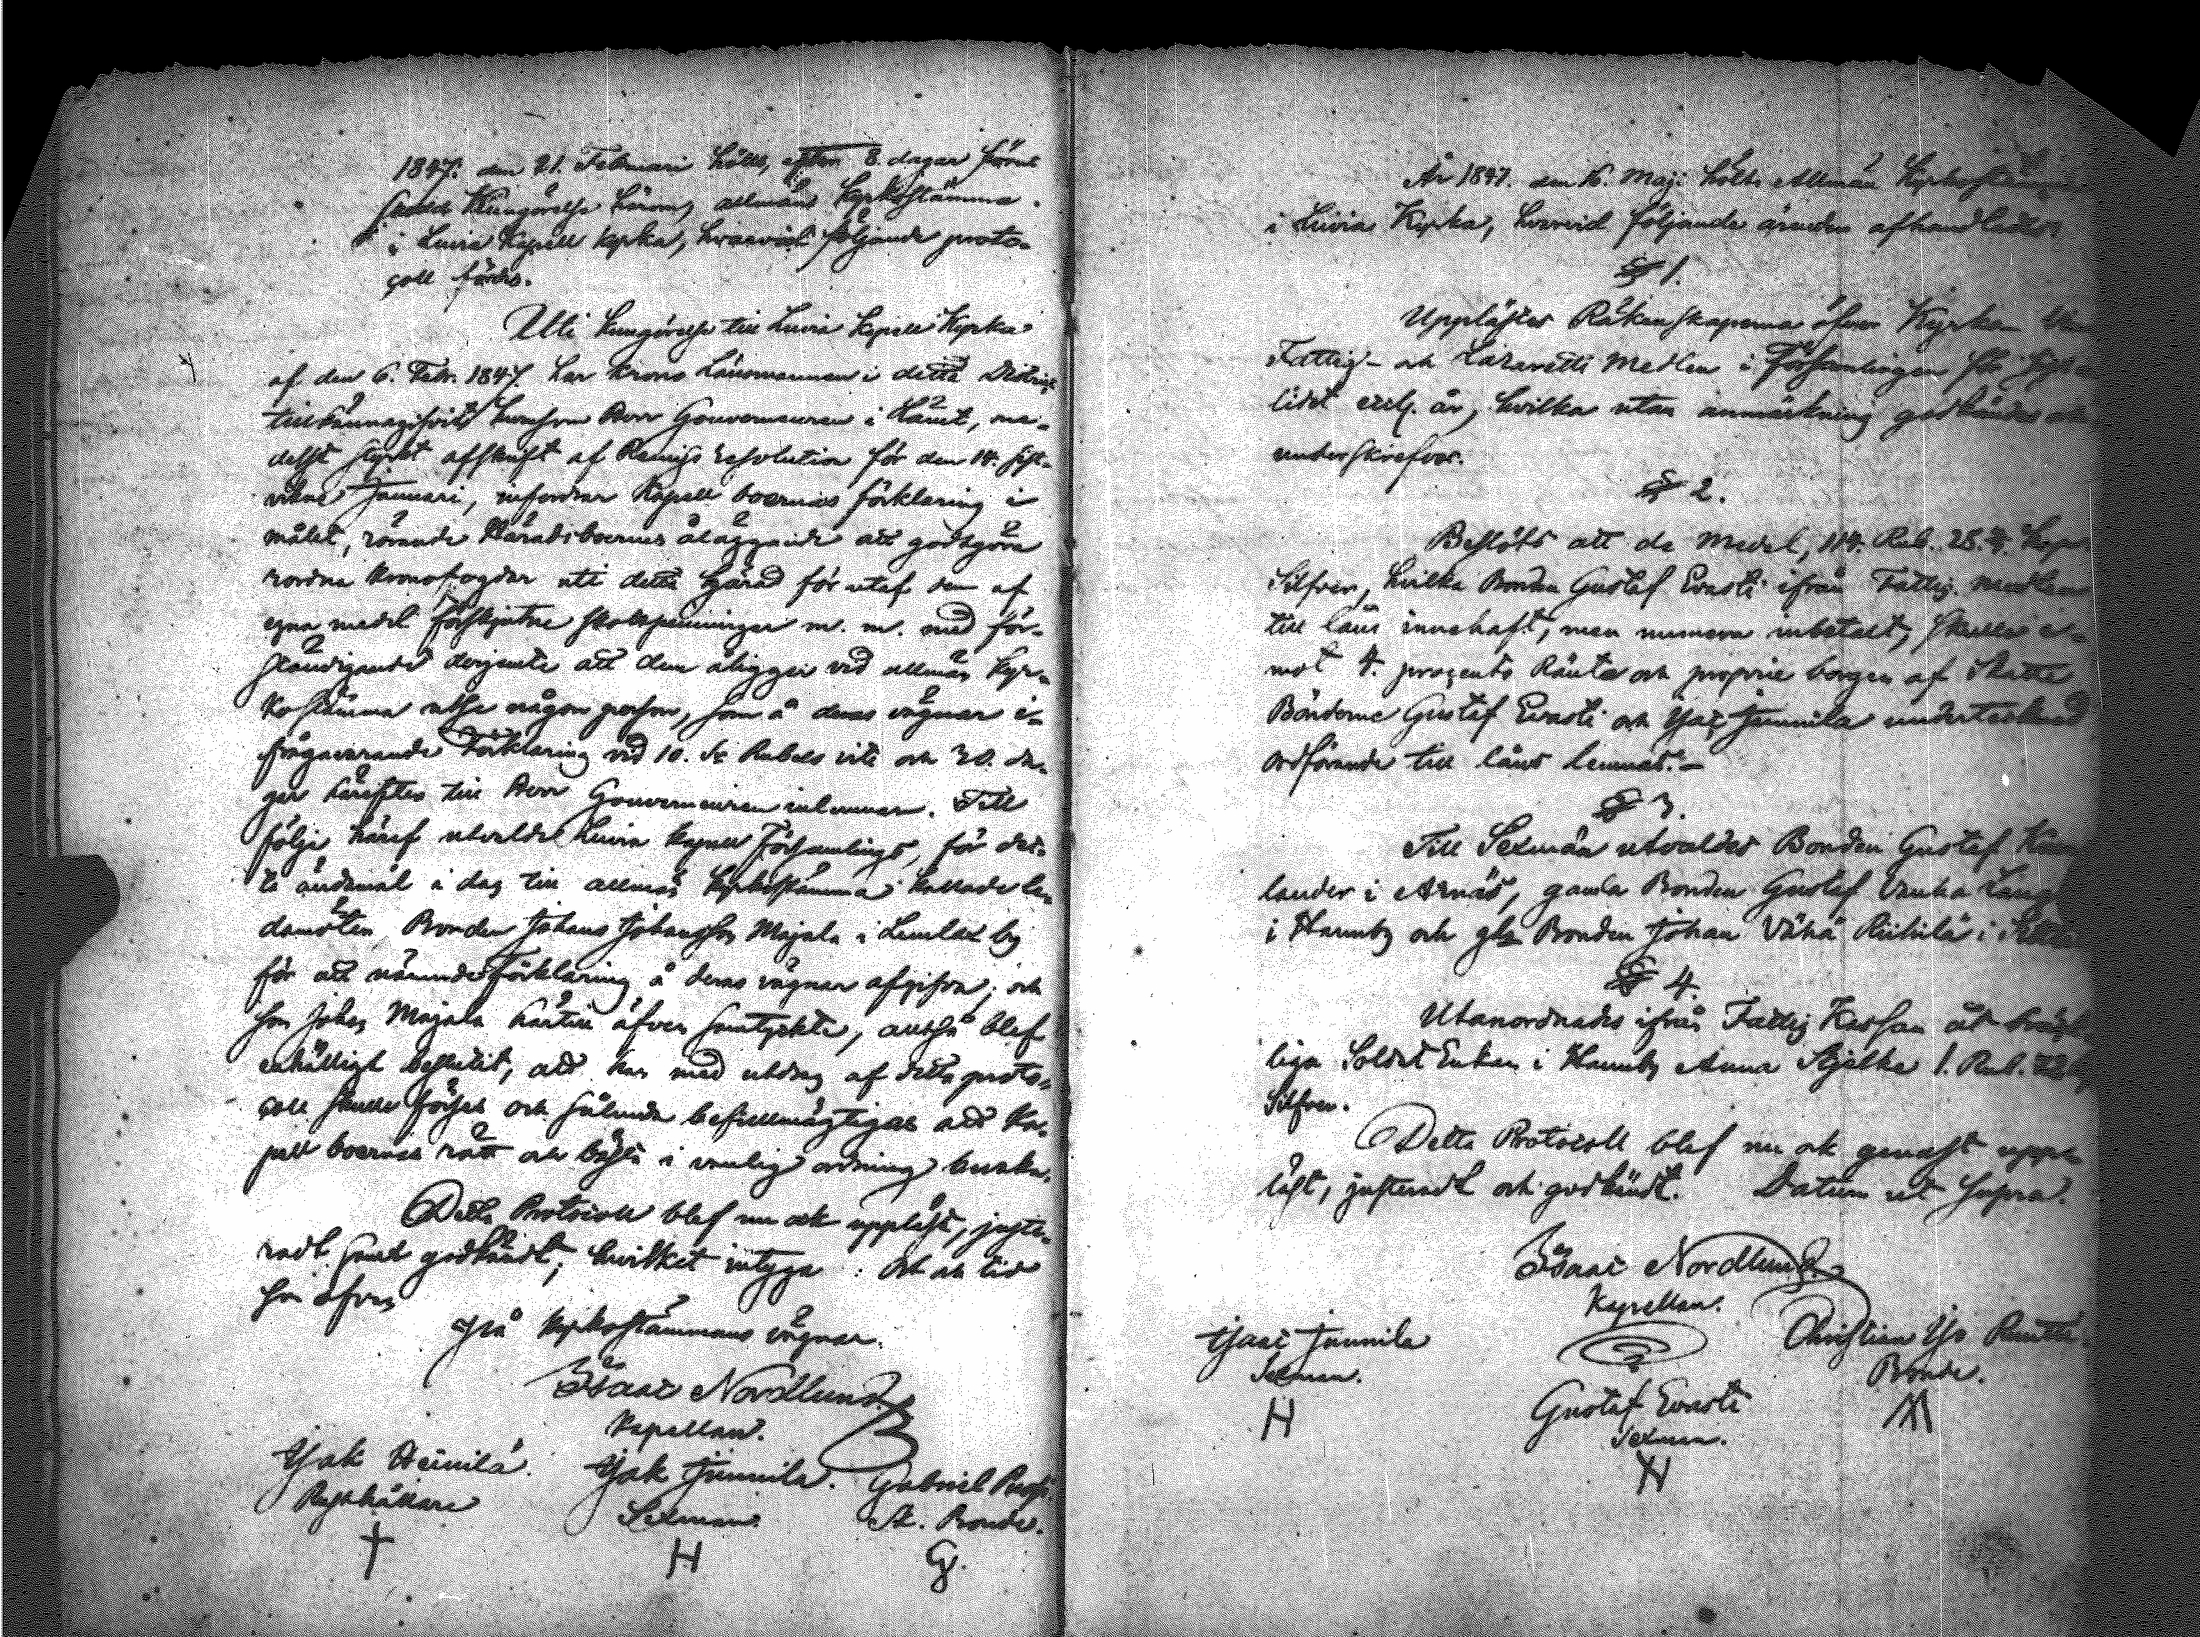 1847. den 21. Februari hölls, efter 8. dagar förut
skedd Kungörelse härom, allmän Kyrkostämma
i Luvia Kapell kyrka, hvarvid följande proto-
coll fördes.
Uti kungörelse till Luvia Kapell Kyrka
af den 6. Febr. 1847. har Krono Länsmannen i detta District
tillkännagifvit huruson Herr Gouverneuren i Länet, me-
delst styrkt afskrift af Remiss resolution för den 14. sist-
vikne Januari, infordrar Kapell boernas förklaring i
målet, rörande Häradsboernes åläggande att godtgöra
kronofogdar uti detta härad för utaf dem af
egna medel förskjutne skattpenningar m. m. med för-
ständigande derjemte att dem åligger vid allmän kyr-
kostämma utse någon person, som å deras vägnar i-
frågavarande Förklaring vid 10. Sr Rubels vite och 30. da-
gar härefter till Herr Gouverneuren inlemnar. Till
följe häraf utvalde Luvia Kapell Församlings, för det-
ta ändamål i dag till allmän kyrkostämma kallade le-
damöter Bonden Johans Johansson Majala i Lemlax by
för att nämnde förklaring å deras vägnar afgifva; och
som Johan Majala härtill äfven samtyckte, alltså blef
enhälligt beslutit, att han med utdrag af detta proto-
coll skulle förses och sålunda befullmägtigas att Ka-
pell boernas rätt och bästa i vanlig ordning bevaka.
Detta Protocoll blef nu ock uppläst, juste-
radt samt godkändt, hvilket intyga: Och an tid
som ofvan
På Kyrkostämmans vägnar.
Isaac Nordlund.
Kapellan.
Isak Heinilä. Isak Junnila. Gabriel
Rusthållare Sexman. Sk. Bonde.
H
År 1847. den 16. Maji hölts Allmän Kyrkostämma
i Luvia Kyrka, hvarvid följande ärenden afhandlades
§ 1.
Upplästes Räkenskaperna öfver Kyrkan
Fattig- och Lazaretts Medlen i Församlingen för
lidet år, hvilka utan anmärkning godkändes och
underskrefvos.
§ 2.
Beslöts att de Medel, 114. Rub. 28. Kop
Silfver, hvilka Bonden Gustaf Evasti ifrån Fattig. Medlen
till låns innehaft, men numera inbetalt, skulle e-
mot 4. procents Ränta och proprie borgen af Skatte
Bönderne Gustaf Evasti och Isac Junnila undertecknad
ordförande till låns lemnas.-
§ 3.
Till Sexmän utvaldes Bonden Gustaf
lander i Arnäs, gamla Bonden Gustaf Vanha
i Hannby och gla Bonden Johan Vähä Riihilä i
§ 4.
Utanordnades ifrån Fattig Kassan åt
liga Soldat Enkan i Hannby Anna Stjelke 1. Rub.
Silfver.
Detta Protocoll blef nu ock genast upp-
läst, justeradt och godkändt. Datum ut Supra.
Isaac Nordlund.
Kapellan.
Isaac Junnila Christian
Sexman. Bonde.
H
Gustaf Evasti
Sexman.